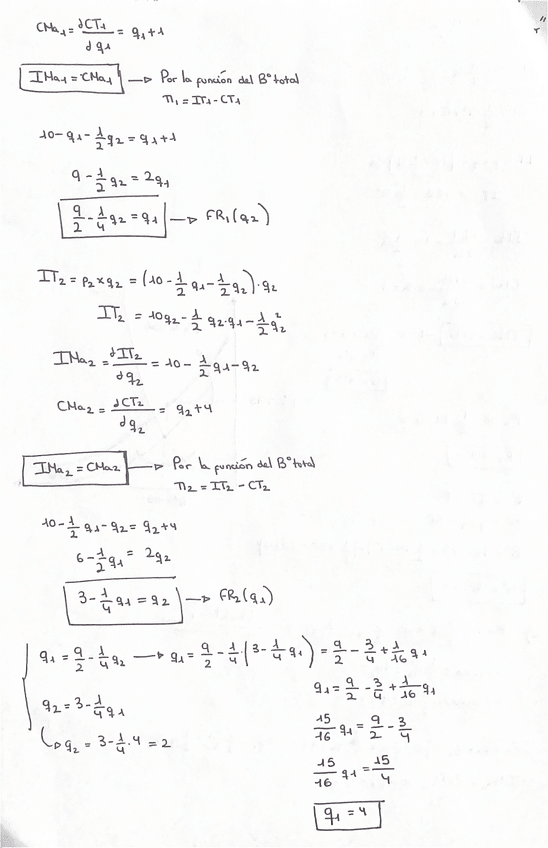 CMa₁ = dCT₁/dq₁ = q₁+1
IMa₁ = CMa₁ → Por la función del Bº total
π₁ = IT₁ - CT₁
10 - q₁ - 1/2 q₂ = q₁+1
9 - 1/2 q₂ = 2q₁
9/2 - 1/4 q₂ = q₁ → FR₁(q₂)
IT₂ = p₂ x q₂ = (10 - 1/2 q₁ - 1/2 q₂)·q₂
IT₂ = 10q₂ - 1/2 q₂·q₁ - 1/2 q₂²
IMa₂ = dIT₂/dq₂ = 10 - 1/2 q₁ - q₂
CMa₂ = dCT₂/dq₂ = q₂+4
IMa₂ = CMa₂ → Por la función del Bº total
π₂ = IT₂ - CT₂
10 - 1/2 q₁ - q₂ = q₂+4
6 - 1/2 q₁ = 2q₂
3 - 1/4 q₁ = q₂ → FR₂(q₁)
q₁ = 9/2 - 1/4 q₂ → q₁ = 9/2 - 1/4·(3 - 1/4 q₁) = 9/2 - 3/4 + 1/16 q₁
q₁ = 9/2 - 3/4 + 1/16 q₁
q₂ = 3 - 1/4 q₁
15/16 q₁ = 9/2 - 3/4
q₂ = 3 - 1/4·4 = 2
15/16 q₁ = 15/4
q₁ = 4